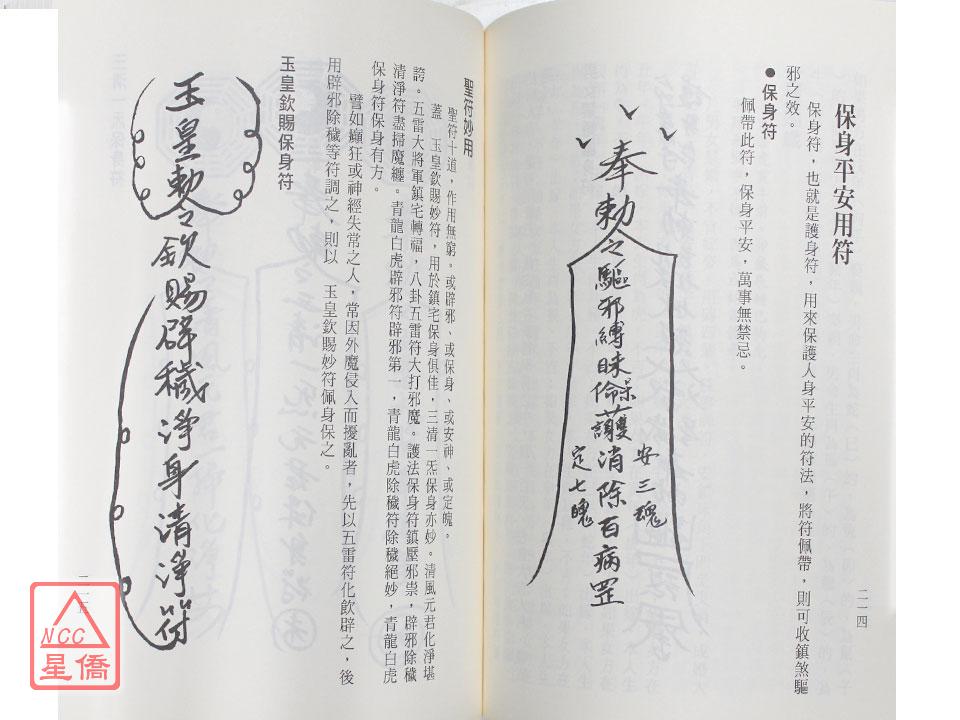 保身平安用符
保身符，也就是護身符，用來保護人身平安的符法，將符佩帶，則可收鎮煞驅
邪之效。
●保身符
佩帶此符，保身平安，萬事無禁忌。
奉勅令驅邪縛
保
護消除百病罡
安三魂
定七魄
二一四
聖符妙用
聖符十道，作用無窮。或辟邪、或保身、或安神、或定魄。
蓋　玉皇欽賜妙符，用於鎮宅保身俱佳，三清一炁保身亦妙。清風元君化淨堪
誇。五雷大將軍鎮宅轉福，八卦五雷符大打邪魔。護法保身符鎮壓邪祟，辟邪除穢
清淨符盡掃魔纏。青龍白虎辟邪符辟邪第一，青龍白虎除穢符除穢絕妙，青龍白虎
保身符保身有方。
譬如癲狂或神經失常之人，常因外魔侵入而擾亂者，先以五雷符化飲辟之，後
用辟邪除穢等符調之，則以　玉皇欽賜妙符佩身保之。
玉皇欽賜保身符
玉皇勅令欽賜辟穢淨身清淨符
二一五
NCC
星僑